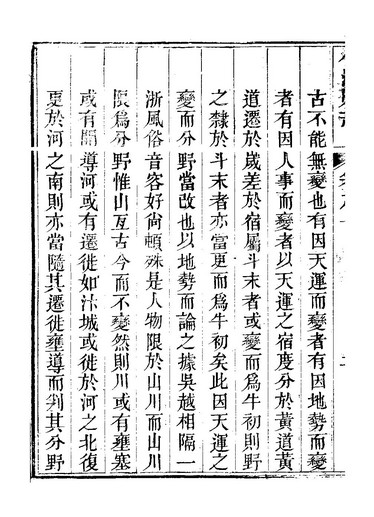 古不能無變也有因天運而變者有因地勢而變
者有因人事而變者以天運之宿度分於黃道黃
道遷於歲差於宿屬斗末者或變而爲牛初則野
之隸於斗末者亦當更而爲牛初矣此因天運之
變而分野當改也以地勢而論之據吳越相隔一
浙風俗音容好尚頓殊是人物限於山川而山川
限爲分野惟山亙古今而不變然則川或有壅塞
或有開導河或有遷徙如汴城或徙於河之北復
更於河之南則亦當隨其遷徙壅導而判其分野